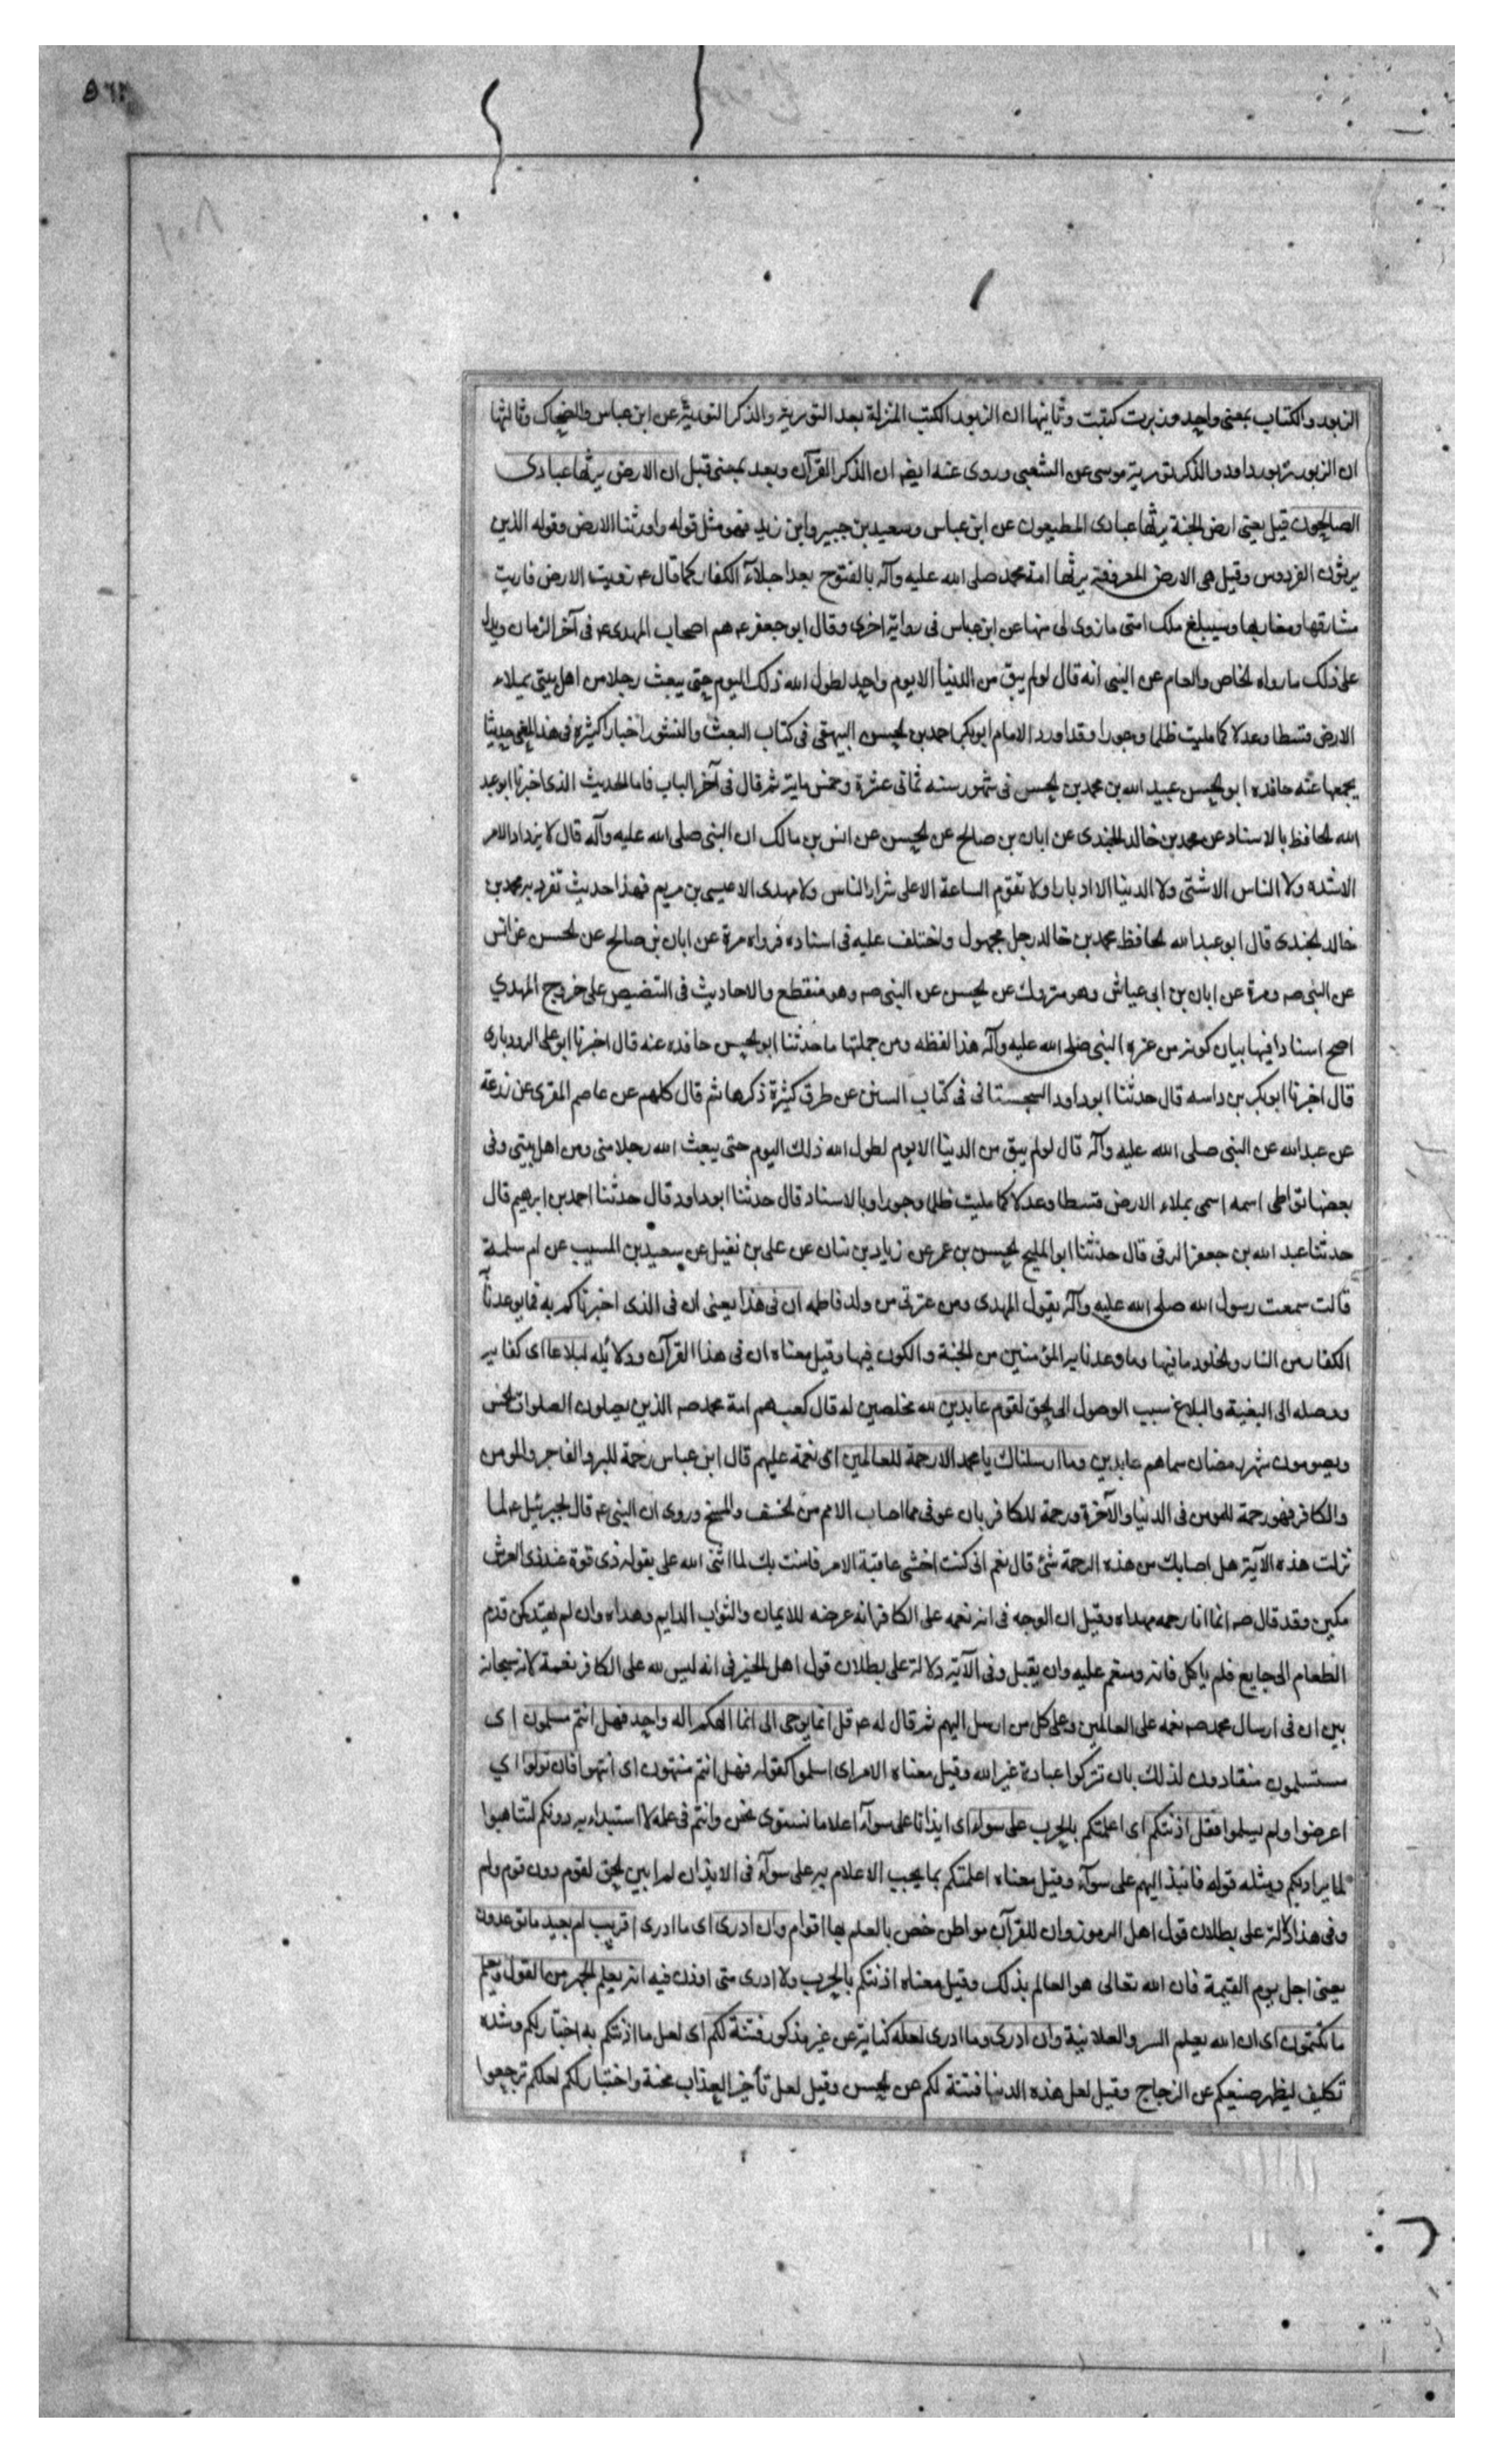 الزبور والكتاب بمعنى واحد و زبرت كتبت وثانيها ان الزبور الكتب المنزلة بعد التورية والذكر التورية عن ابن عباس والضحاك وثالثها
ان الزبور زبور داود والذكر تورية موسى عن الشعبى وروى عنه ايضا ان الذكر القرآن وبعد بمعنى قبل ان الارض يرثها عبادى
الصالحون قيل يعنى ارض الجنة يرثها عبادى المطيعون عن ابن عباس وسعيد بن جبير وابن زيد فهو مثل قوله واورثنا الارض وقوله الذين
يرثون الفردوس وقيل هى الارض المعروفة يرثها امة محمد صلى الله عليه وآله بالفتوح بعد اجلآء الكفار كما قال ع زويت الارض فاريت
مشارقها ومغاربها وسيبلغ ملك امتى ما زوى لى منها عن ابن عباس فى رواية اخرى وقال ابو جعفر ع هم اصحاب المهدى ع فى آخر الزمان ويدل
على ذلك ما رواه الخاص والعام عن النبى انه قال لو لم يبق من الدنيا الا يوم واحد لطول الله ذلك اليوم حتى يبعث رجلا من اهل بيتى يملاء
الارض قسطا وعدلا كما مليت ظلما وجورا وقد اورد الامام ابو بكر احمد بن الحسين البيهقى فى كتاب البعث والنشور اخبارا كثيرة فى هذا المعنى حدثنا
بجميعها عنه حافده ابو الحسن عبيد الله بن محمد بن الحسن فى شهور سنه ثمانى عشرة وخمس ماية ثم قال فى آخر الباب فاما الحديث الذى اخبرنا ابو عبد
الله الحافظ بالاسناد عن محمد بن خالد الجندى عن ابان بن صالح عن الحسن عن انس بن مالك ان النبى صلى الله عليه وآله قال لا يزداد الامر
الا شده ولا الناس الا شتى ولا الدنيا الا ادبارا ولا تقوم الساعة الا على شرار الناس ولا مهدى الا عيسى بن مريم فهذا حديث تفرد به محمد بن
خالد الجندى قال ابو عبد الله الحافظ محمد بن خالد رجل مجهول واختلف عليه فى اسناده فرواه مرة عن ابان بن صالح عن الحسن عن انس
عن النبى صه ومرة عن ابان بن ابى عياش وهو متروك عن الحسن عن النبى صه وهو منقطع والاحاديث فى التنصيص على خروج المهدي
اصح اسنادا فيها بيان كونه من عتره النبى صلى الله عليه وآله هذا لفظه ومن جملتها ما حدثنا ابو الحسن حافده عنه قال اخبرنا ابو على الرودبارى
قال اخبرنا ابو بكر بن داسه قال حدثنا ابو داود السجستانى فى كتاب السنن عن طرق كثيرة ذكرها ثم قال كلهم عن عاصم المقرى عن زرعة
عن عبد الله عن النبى صلى الله عليه وآله قال لو لم يبق من الدنيا الا يوم لطول الله ذلك اليوم حتى يبعث الله رجلا منى ومن اهل بيتى وفى
بعضها تواطى اسمه اسمى يملاء الارض قسطا وعدلا كما مليت ظلما وجورا وبالاسناد قال حدثنا ابو داود قال حدثنا احمد بن ابرهيم قال
حدثنا عبد الله بن جعفر الرقى قال حدثنا ابو المليح الحسن بن عمر عن زياد بن بنان عن على بن نفيل عن سعيد بن المسيب عن ام سلمة
قالت سمعت رسول الله صلى الله عليه وآله يقول المهدى ومن عترتى من ولد فاطمه ان فى هذا يعنى ان فى الذى اخبرناكم به مما يوعدنا
الكفار من النار والخلود ما فيها وما وعدنا به المؤمنين من الجنة والكون فيها وقيل معناه ان فى هذا القرآن ودلائله لبلاغا اى كفايه
ووصله الى البغية والبلاغ سبب الوصول الى الحق لقوم عابدين لله مخلصين له قال كعب هم امة محمد صه الذين يصلون الصلوات الخمس
ويصومون شهر رمضان سماهم عابدين وما ارسلناك يا محمد الا رحمة للعالمين اى نعمة عليهم قال ابن عباس رحمة للبر والفاجر والمومن
والكافر فهو رحمة للمومن فى الدنيا والآخرة ورحمة للكافر بان عوفى مما اصاب الامم من الخسف والمسخ وروى ان النبى ع قال لجبرئيل ع لما
نزلت هذه الآية هل اصابك من هذه الرحمة شئ قال نعم انى كنت اخشى عاقبة الامر فامنت بك لما اثنى الله على بقوله ذى قوة عند ذى العرش
مكين وقد قال صه انما انا رحمه مهداه وقيل ان الوجه فى انه نعمه على الكافر انه عرضه للايمان والثواب الدايم وهداه وان لم يهتد كمن قدم
الطعام الى جايع فلم ياكل فانه منعم عليه وان لم يقبل وفى الآية دلالة على بطلان قول اهل الجبر فى انه ليس لله على الكافر نعمة لانه سبحانه
بين ان فى ارسال محمد صه نعمه على العالمين وعلى كل من ارسل اليهم ثم قال له ع قل انما يوحى الى انما الهكم اله واحد فهل انتم مسلمون اى
مستسلمون منقادون لذلك بان تتركوا عبادة غير الله وقيل معناه الامر اى اسلموا كقوله فهل انتم منتهون اى انتهوا فان تولوا اي
اعرضوا ولم يسلموا فقل اذنتكم اى اعلمتكم بالحرب على سواء اى ايذانا على سوآء اعلاما نستوى نحن وانتم فى علمه لا استبداد به دونكم لتتاهبوا
لما يراد بكم ومثله قوله فانبذ اليهم على سوآء وقيل معناه اعلمتكم بما يجب الاعلام به على سوآء فى الايذان لم ابين الحق لقوم دون قوم ولم
وفى هذا دلالة على بطلان قول اهل الرموز وان للقرآن مواطن خص بالعلم بها اقوام وان ادرى اى ما ادرى اقريب ام بعيد ما توعدون
يعنى اجل يوم القيمة فان الله تعالى هو العالم بذلك وقيل معناه اذنتكم بالحرب ولا ادرى متى اوذن فيه انه يعلم الجهر من القول ويعلم
ما تكتمون اى ان الله يعلم السر والعلانية وان ادرى وما ادرى لعله كناية عن غير مذكور فتنة لكم اى لعل ما اذنتكم به اختبار لكم وشده
تكليف ليظهر صنيعكم عن الزجاج وقيل لعل هذه الدنيا فتنة لكم عن الحسن وقيل لعل تأخير العذاب محنة واختبار لكم لعلكم ترجعوا